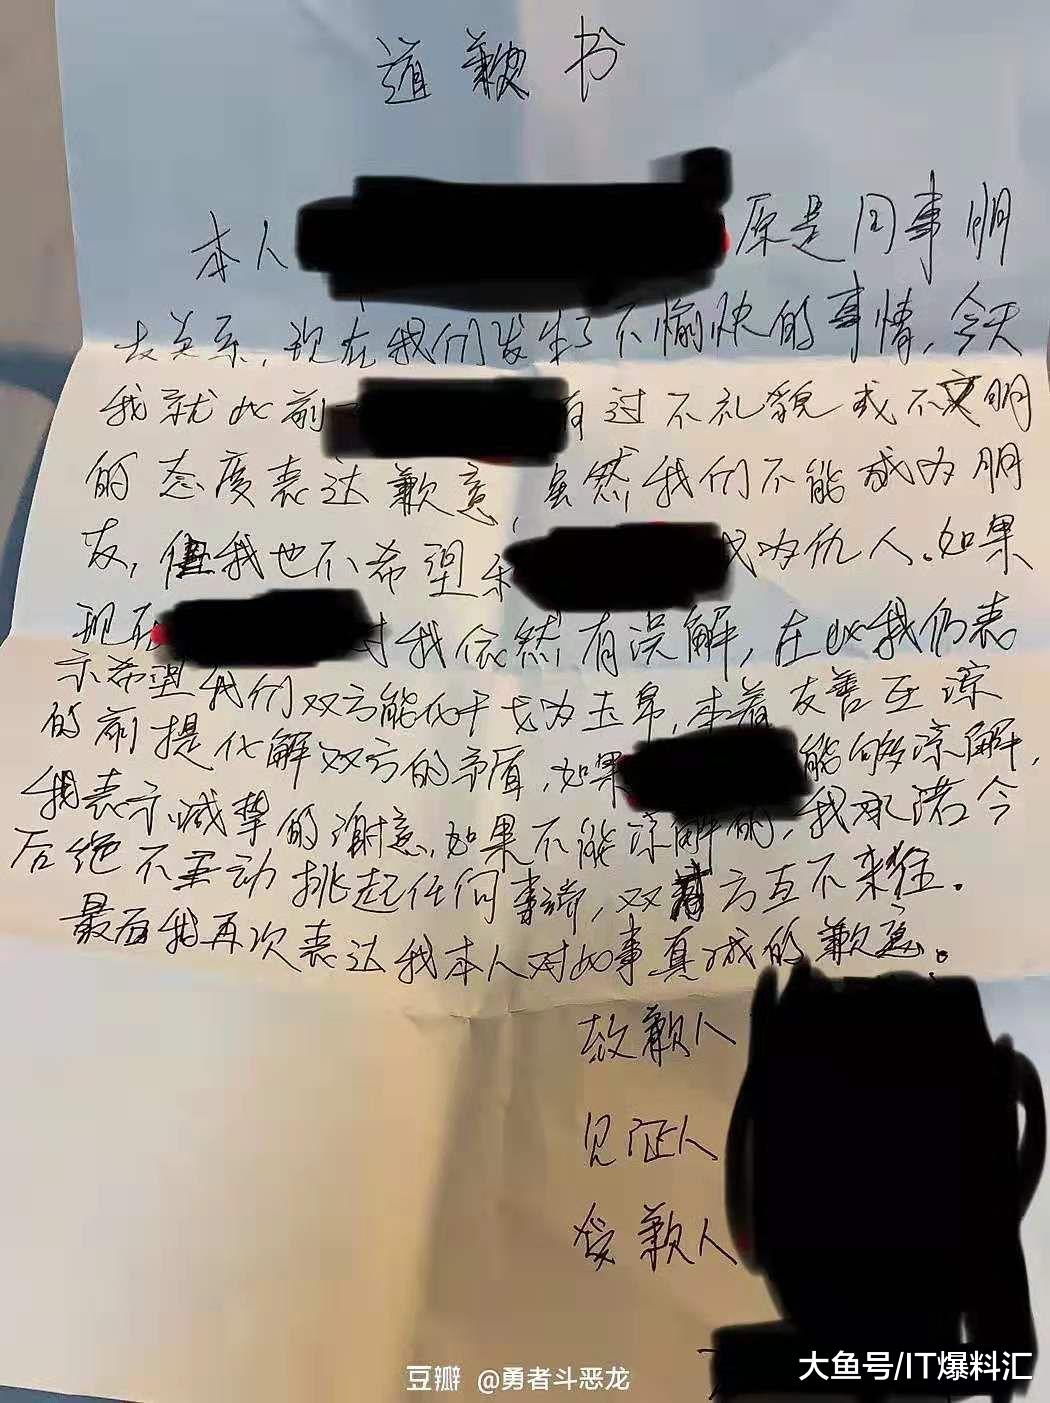 道歉书
本人 原是同事朋
友关系，现在我们发生了不愉快的事情，今天
我就此前 有过不礼貌或不 明
的态度表达歉意，虽然我们不能成为朋
友，但我也不希望和 成为仇人。如果
现在 对我依然有误解，在此我仍表
示希望我们双方能化干戈为玉帛，本着友善互谅
的前提化解双方的矛盾，如果 能够谅解，
我表示诚挚的谢意，如果不能谅解的，我承诺今
后绝不主动挑起任何事端，双方互不来往。
最后我再次表达我本人对此事真诚的歉意。
致歉人
见证人
受歉人
豆瓣 @勇者斗恶龙
大鱼号/IT爆料汇